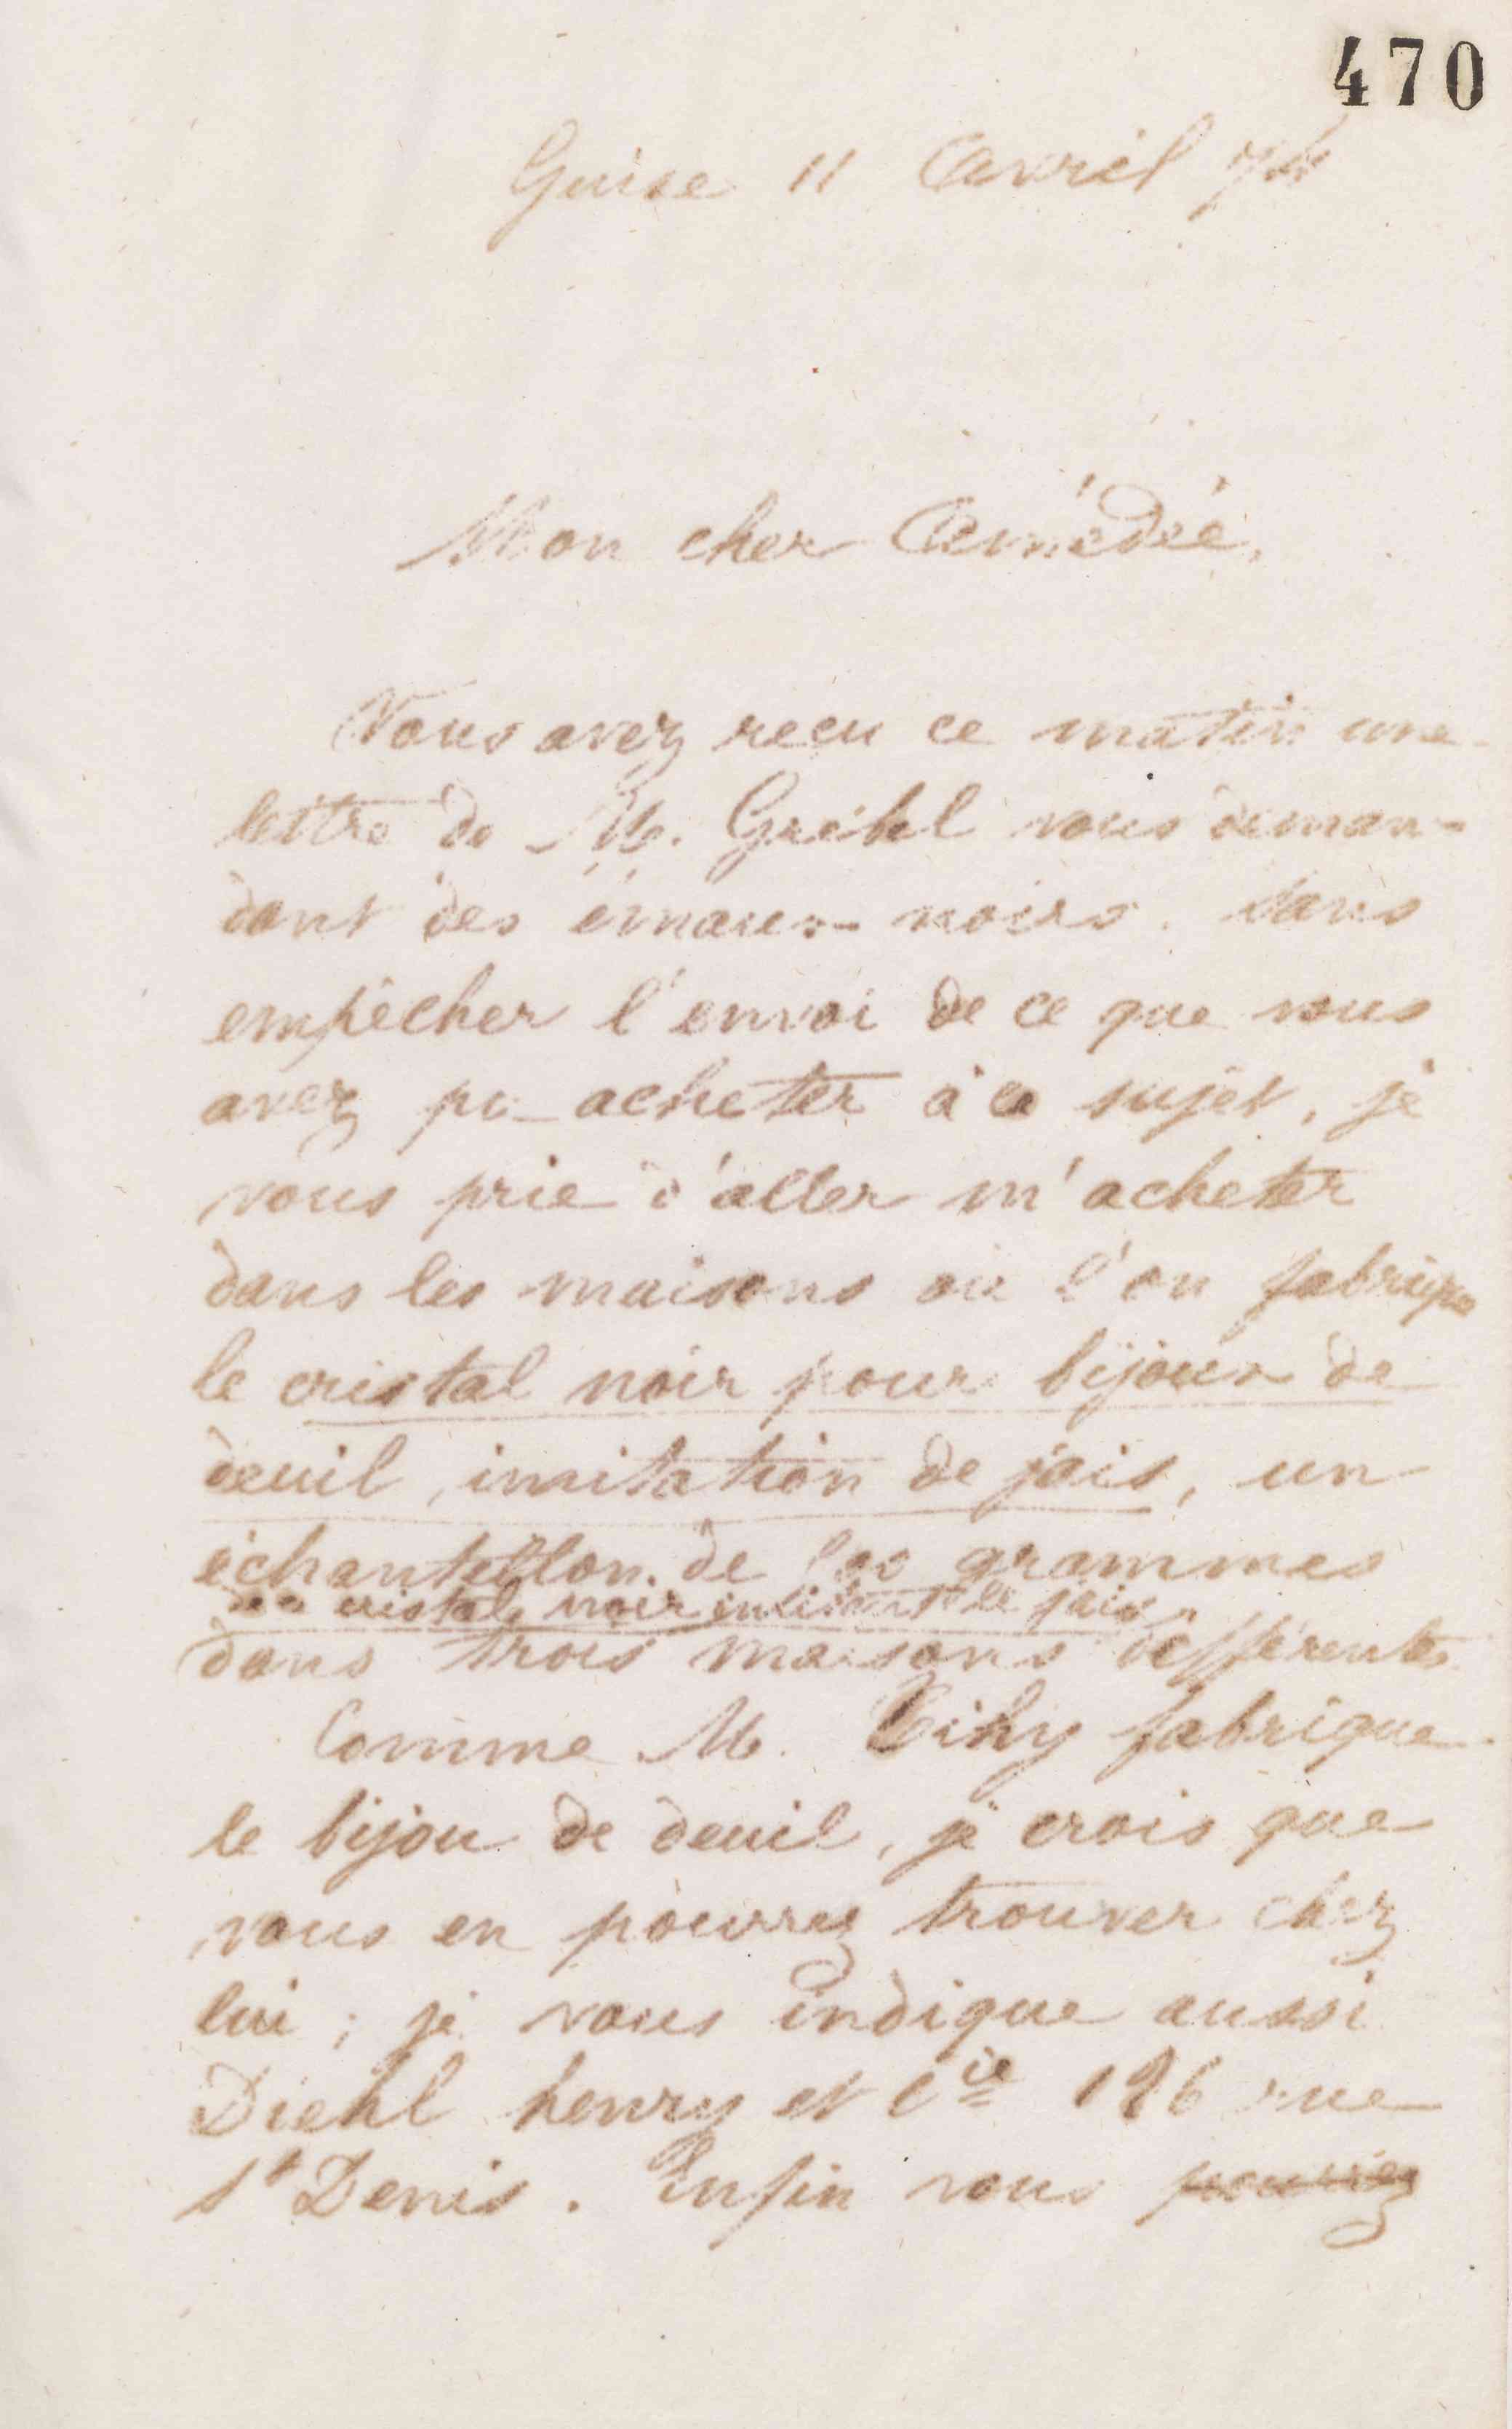 470
Guise 11 Avril
Mon cher Amédée,
Vous avez reçu ce matin une
lettre de M. Grebel vous deman-
dant des émaux noirs. Sans
empêcher l'envoi de ce que vous
avez pu acheter à ce sujet, je
vous prie d'aller m'acheter
dans les maisons où l'on fabrique
le cristal noir pour bijoux de
deuil, imitation de jais, un
échantillon de 100 grammes
de cristal noir imitant le jais
dans trois maisons différentes
Comme M. fabrique
le bijou de deuil, je crois que
vous en pourrez trouver chez
lui ; je vous indique aussi
Diehl henry et Cie 186 rue
St Denis. Enfin vous pourriez